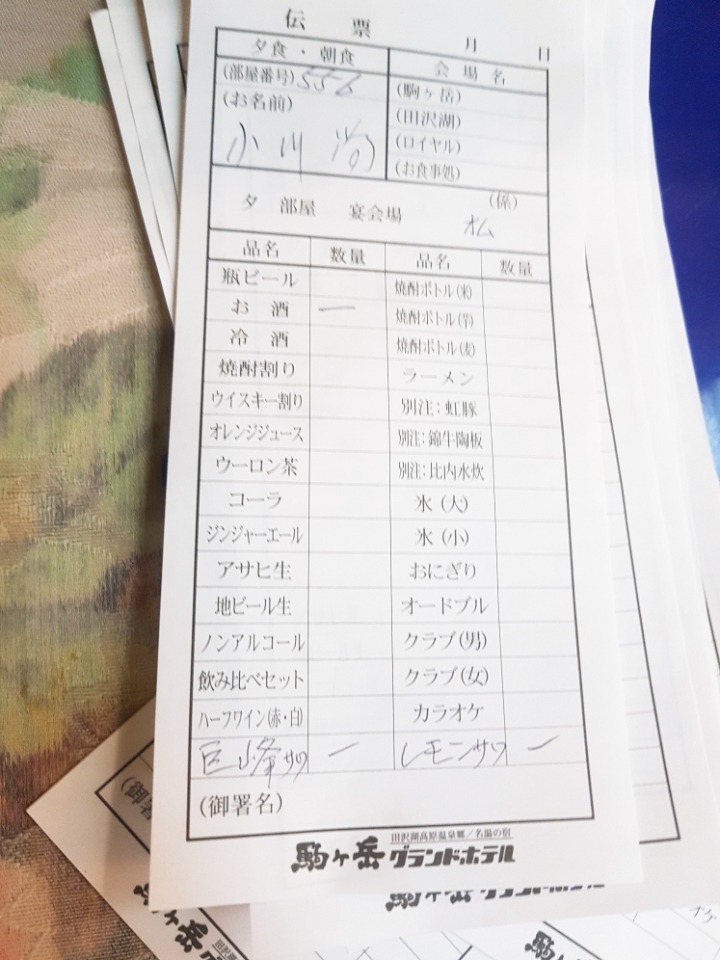 伝 票 月 日
夕食・朝食 会場名
(部屋番号) 556 (駒ヶ岳)
(お名前) (田沢湖)
小川 (ロイヤル)
(お食事処)
夕 部屋 宴会場 (係)
品名 数量 品名 数量
瓶ビール 焼酎ボトル(米)
お酒 一 焼酎ボトル(芋)
冷酒 焼酎ボトル(麦)
焼酎割り ラーメン
ウイスキー割り 別注:虹豚
オレンジジュース 別注:錦牛陶板
ウーロン茶 別注:比内水炊
コーラ 氷(大)
ジンジャーエール 氷(小)
アサヒ生 おにぎり
地ビール生 オードブル
ノンアルコール クラブ(男)
飲み比べセット クラブ(女)
ハーフワイン(赤・白) カラオケ
巨峰サワ 一 レモンサワ 一
(御署名)
田沢湖高原温泉郷/名湯の宿
駒ヶ岳グランドホテル
駒ヶ岳グランドホテル